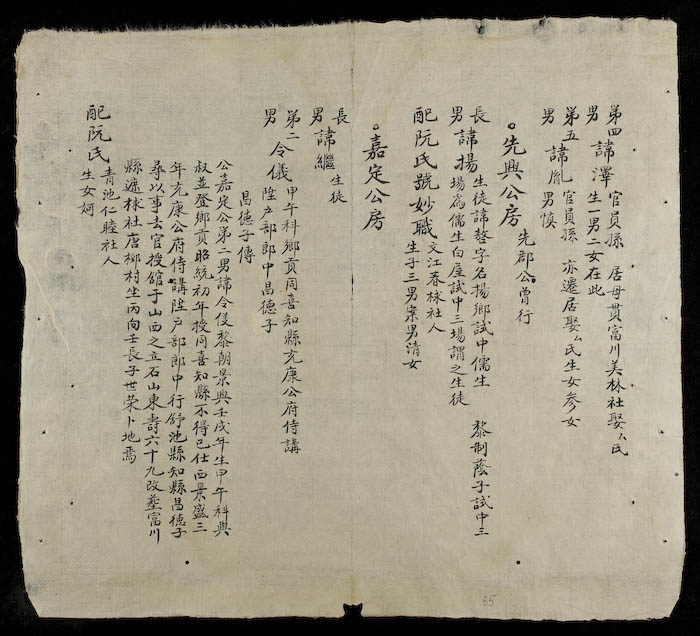 第四男 諱澤 官員孫 居母貫富川美林社娶厶氏
生一男二女在此
第五男 諱胤 官員孫 亦遷居娶厶氏生女参女
男慎
。先興公房 先郡公曾行
長男 諱揚 生徒諱啓字名揚鄉試中儒生 黎制蔭子試中三
場為儒生白屋試中三場謂之生徒
配阮氏號妙職 文江春林社人
生子三男寀男清女
。嘉定公房
長男 諱繼 生徒
第二男 令儀 甲午科鄉貢同喜知縣充康公府侍講
陞户部郎中昌德子
昌德子傳
公嘉定公第二男諱令侵黎朝景興壬戌年生甲午科與
叔並登鄉貢昭統初年授同喜知縣不得已仕西景盛三
年充康公府侍講陞户部郎中行舒池縣知縣昌德子
尋以事去官授舘于山西之立石山東壽六十九改塟富川
縣遮林社唐柳村坐丙向壬長子世荣卜地焉
配阮氏 青池仁睦社人
生女妸
65